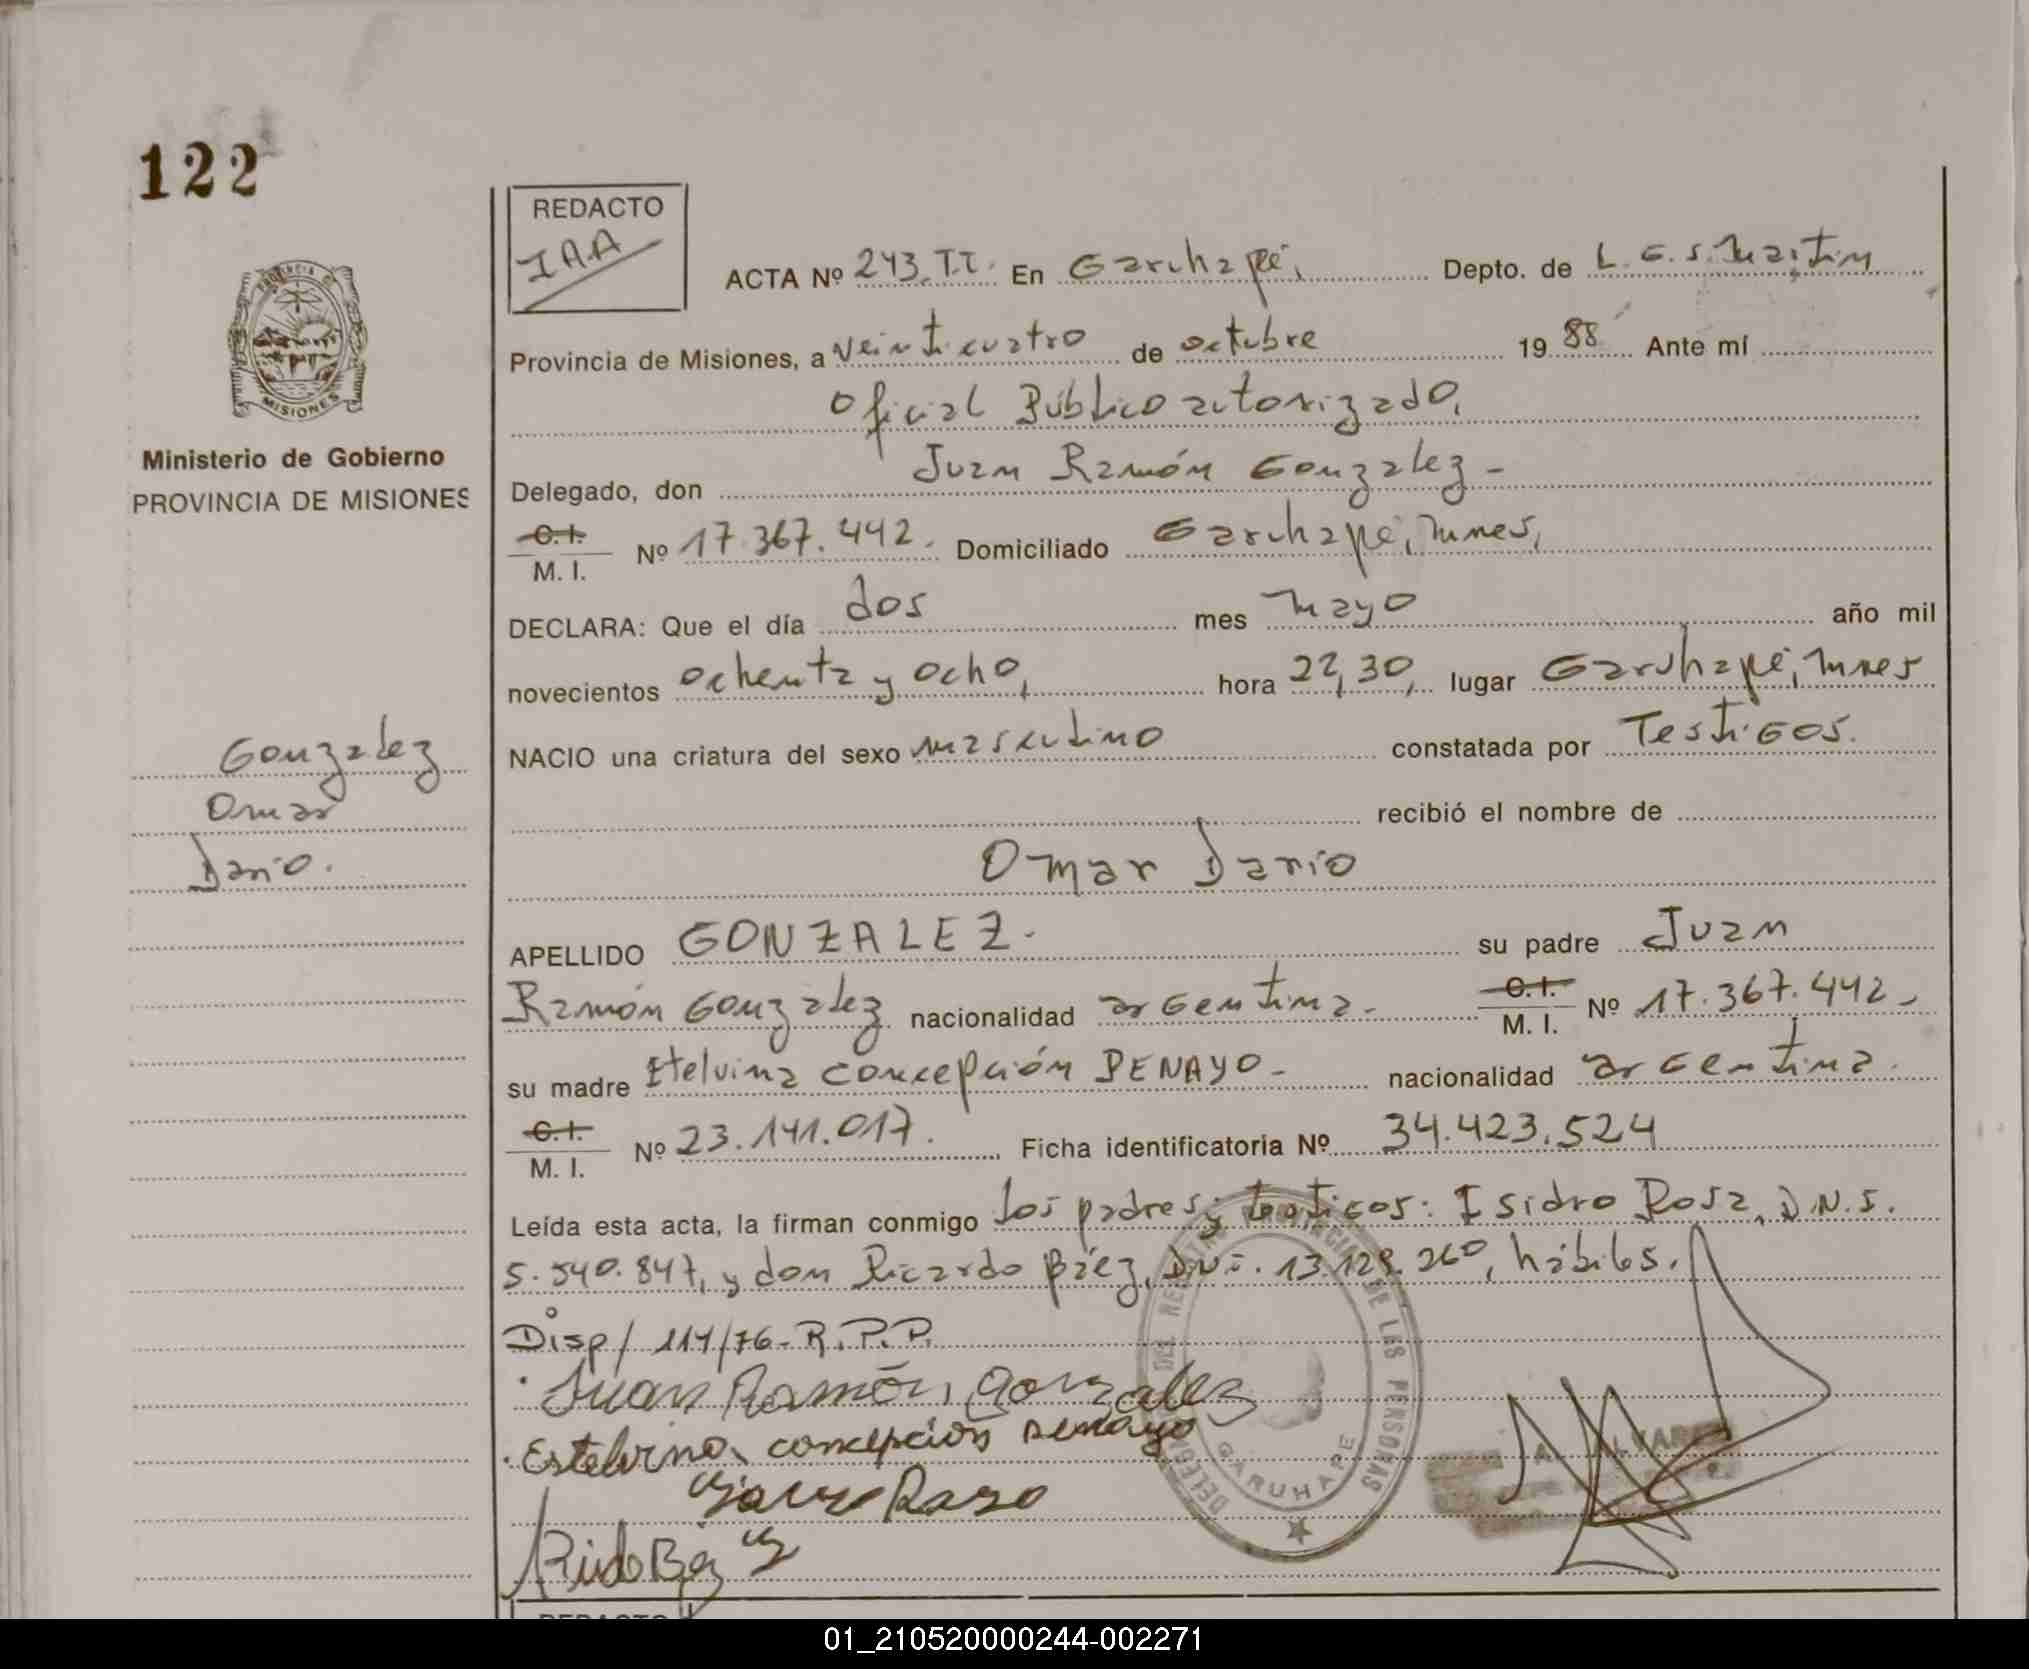 122
REDACTO
IAA
ACTA Nº 243.T.I. En Garuhapé, Depto. de L. G. S. Martín
Provincia de Misiones, a veinticuatro de octubre 1988 Ante mí
Oficial Público autorizado,
Delegado, don Juan Ramón Gonzalez -
C.I.
M. I. Nº 17.367.442. Domiciliado Garuhapé, Mnes,
DECLARA: Que el día dos mes mayo año mil
novecientos ochenta y ocho, hora 22,30, lugar Garuhapé, Mnes
NACIO una criatura del sexo masculino constatada por Testigos.
recibió el nombre de
Omar Dario
APELLIDO GONZALEZ. su padre Juan
Ramón Gonzalez nacionalidad argentina. C.I.
M. I. Nº 17.367.442.
su madre Etelvina Concepción PENAYO - nacionalidad argentina.
C.I.
M. I. Nº 23.141.017. Ficha identificatoria Nº 34.423.524
Leída esta acta, la firman conmigo los padres y testigos: Isidro Rosa, D.N.I.
5.540.847, y don Ricardo Báez, DNI. 13.128.260, hábiles.
Disp/ 114/76-R.P.P.
Juan Ramón Gonzalez
Estelvina concepcion Penayo
PROVINCIA DE MISIONES
Ministerio de Gobierno
PROVINCIA DE MISIONES
Gonzalez
Omar
Dario.
DE LAS PERSONAS
GARUHAPE
REDACTO
01_210520000244-002271